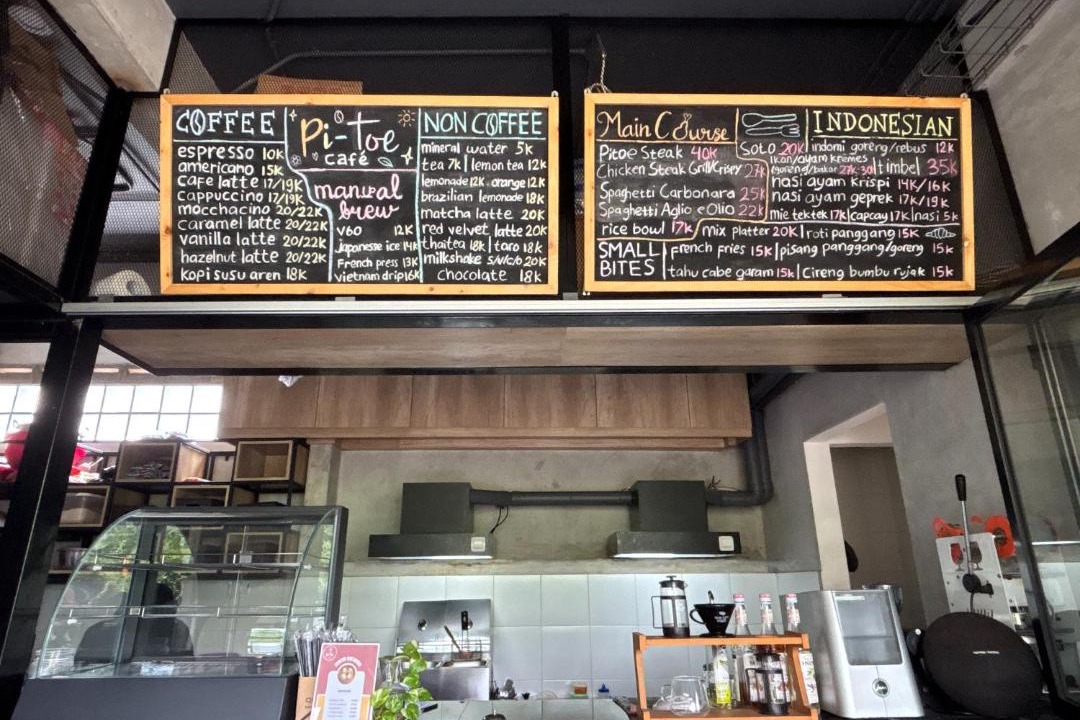 COFFEE
espresso 10K
americano 15K
cafe latte 17/19K
cappuccino 17/19K
mocchacino 20/22K
caramel latte 22/22K
vanilla latte 20/22K
hazelnut latte 20/22K
kopi susu aren 18K
Pi-Toe
café
manual
brew
V60 12K
Japanese ice 14K
French press 13K
vietnam drip 16K
NON COFFEE
mineral water 5K
tea 7K | lemon tea 12K
lemonade 12K . orange 12K
brazilian lemonade 18K
matcha latte 20K
red velvet latte 20K
thai tea 18K | taro 18K
milkshake S/V/C/b 20K
chocolate 18K
Main Course
Pitoe Steak 40K
Chicken Steak Grill/Crispy 27K
Spaghetti Carbonara 25K
Spaghetti Aglio e Olio 22K
rice bowl 17K
INDONESIAN
SOTO 20K indomi goreng/rebus 12K
Ikan/ayam kremes
(goreng/bakar 27K-30) t timbel 35K
nasi ayam krispi 14K/16K
nasi ayam geprek 17K/19K
mie tektek 17K | capcay 17K | nasi 5K
SMALL
BITES
mix platter 20K | roti panggang 15K
french fries 15K | pisang panggang/goreng 15K
tahu cabe garam 15K | Cireng bumbu rujak 15K